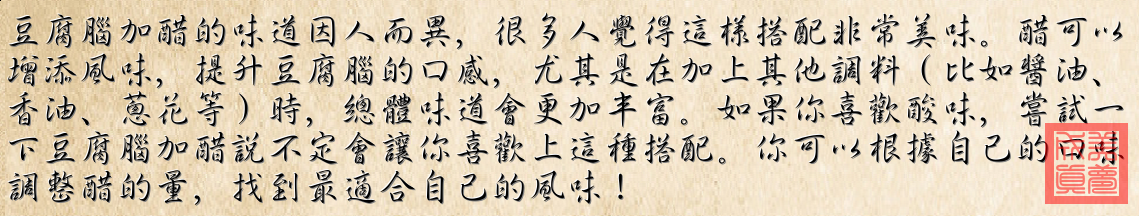 豆腐腦加醋的味道因人而異，很多人覺得這樣搭配非常美味。醋可以
增添風味，提升豆腐腦的口感，尤其是在加上其他調料（比如醬油、
香油、蔥花等）時，總體味道會更加丰富。如果你喜歡酸味，嘗試一
下豆腐腦加醋說不定會讓你喜歡上這種搭配。你可以根據自己的口味
調整醋的量，找到最適合自己的風味！